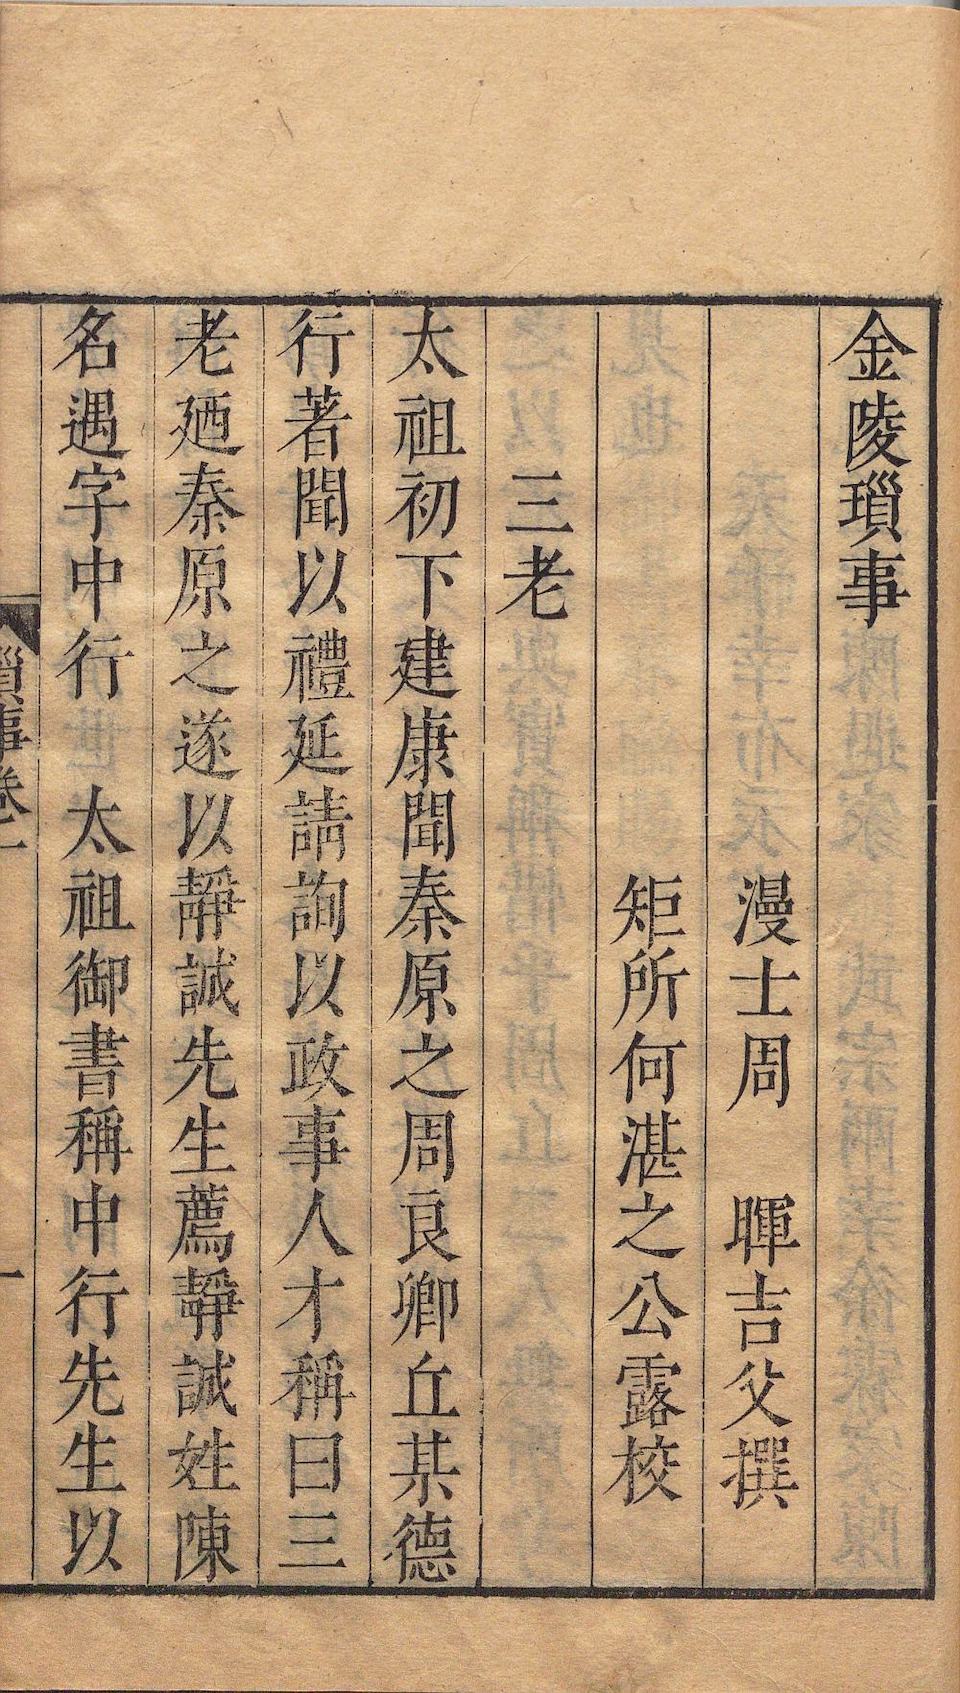 金陵瑣事
漫士周 暉吉父撰
矩所何湛之公露校
三老
太祖初下建康聞秦原之周良卿丘某德
行著聞以禮延請詢以政事人才稱曰三
老廼秦原之遂以靜誠先生薦靜誠姓陳
名遇字中行 太祖御書稱中行先生以
瑣事卷一
一